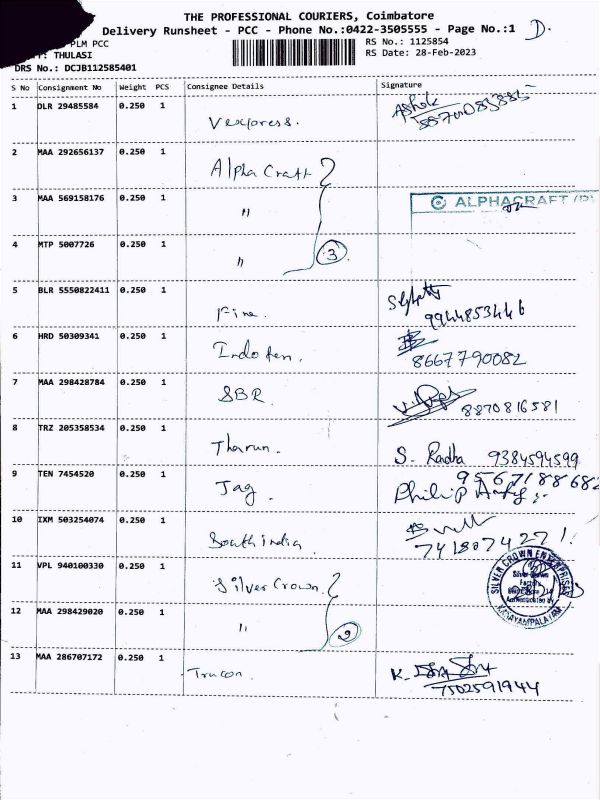 THE PROFESSIONAL COURIERS, Coimbatore
Delivery Runsheet - PCC - Phone No.:0422-3505555 - Page No.:1 D.
PLM PCC RS No.: 1125854
: THULASI RS Date: 28-Feb-2023
DRS No.: DCJB112585401
S No Consignment No Weight PCS Consignee Details Signature
1 DLR 29485584 0.250 1 Vexpress. Ashok
2 MAA 292656137 0.250 1 Alpha Craft
3 MAA 569158176 0.250 1 " ALPHACRAFT (P)
4 MTP 5007726 0.250 1 " 3
5 BLR 5550822411 0.250 1 Fine. 9944853446
6 HRD 50309341 0.250 1 Indoten. 8667790082
7 MAA 298428784 0.250 1 SBR 8870816581
8 TRZ 205358534 0.250 1 Tharun. S. Radha 9384594599
9 TEN 7454520 0.250 1 Jag. 9567188682
Philip
10 IXM 503254074 0.250 1 South india. 7418074271
11 VPL 940100330 0.250 1 Silver Crown. SILVER CROWN ENTERPRISES
12 MAA 298429020 0.250 1 " 2
13 MAA 286707172 0.250 1 Trucon. K.
7502591944